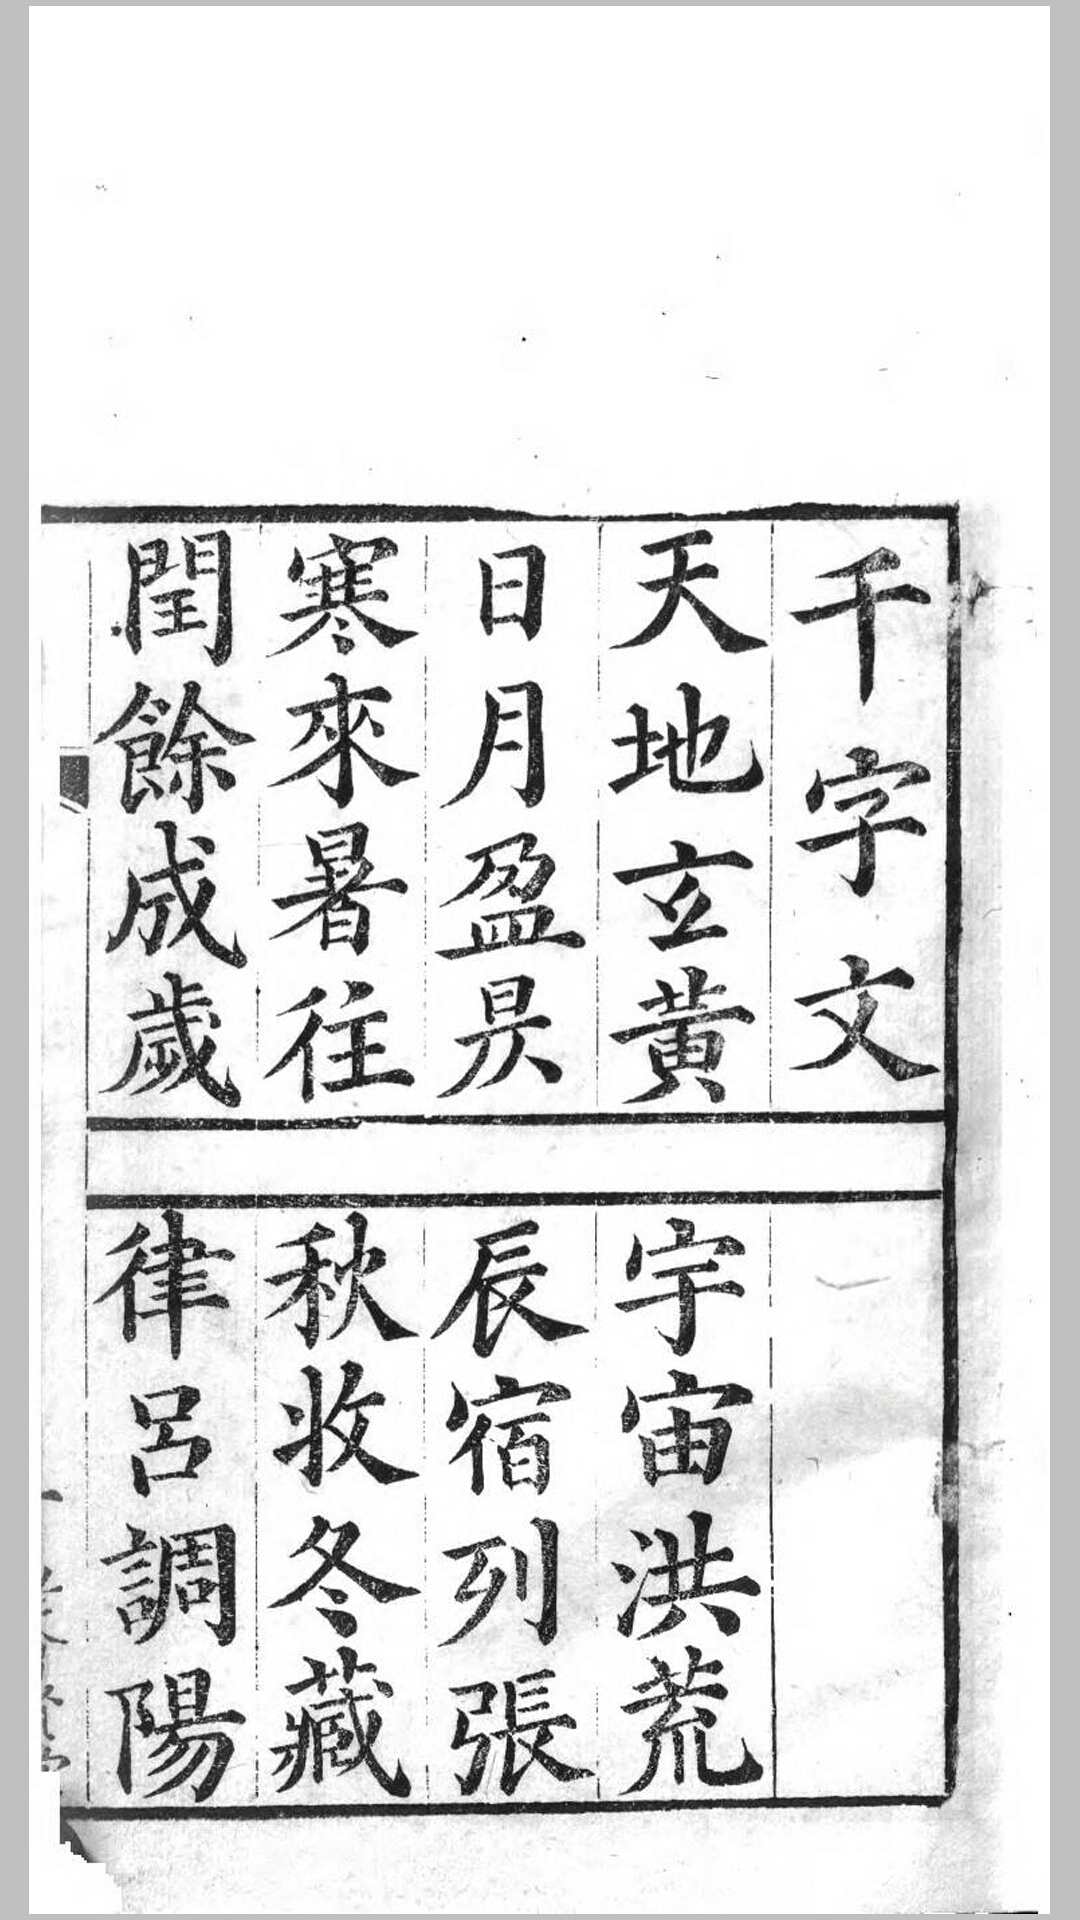 千字文
天地玄黃
宇宙洪荒
日月盈昃
辰宿列張
寒來暑往
秋收冬藏
閏餘成歲
律呂調陽